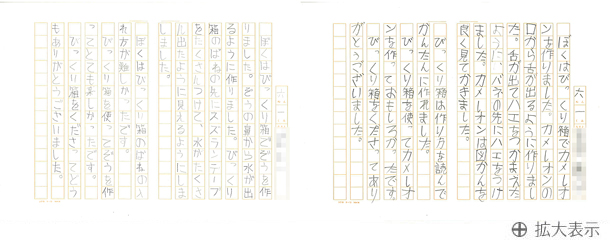 六
ぼくはびっくり箱でカメレオ
ンを作りました。カメレオンの
口から舌が出るように作りまし
た。舌が出てハエをつかまえた
ように、バネの先にハエをつけ
ました。カメレオンは図かんを
良く見てかきました。
びっくり箱は作り方を読んで
かんたんに作れました。
びっくり箱を使ってカメレオ
ンを作って、おもしろかったです
びっくり箱をくださってあり
がとうございました。
六
ぼくはびっくり箱でぞうを作
りました。ぞうの鼻から水が出
るように作りました。びっくり
箱のばねの先にスズランテープ
をたくさんつけて、水がたくさ
ん出たように見えるようにしま
しました。
ぼくはびっくり箱のばねの入
れ方が難しかったです。
びっくり箱を使ってぞうを作
ってとても楽しかったです。
びっくり箱をくださってどう
もありがとうございました。
拡大表示